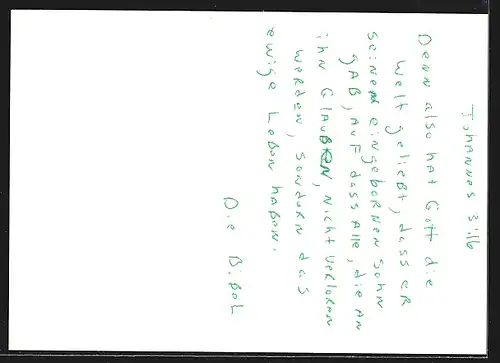 Johannes 3:16
Denn also hat Gott die
Welt geliebt, dass er
seinen eingebornen Sohn
gab, auf dass alle, die an
ihn glauben, nicht verloren
werden, sondern das
ewige Leben haben.
Die Bibel